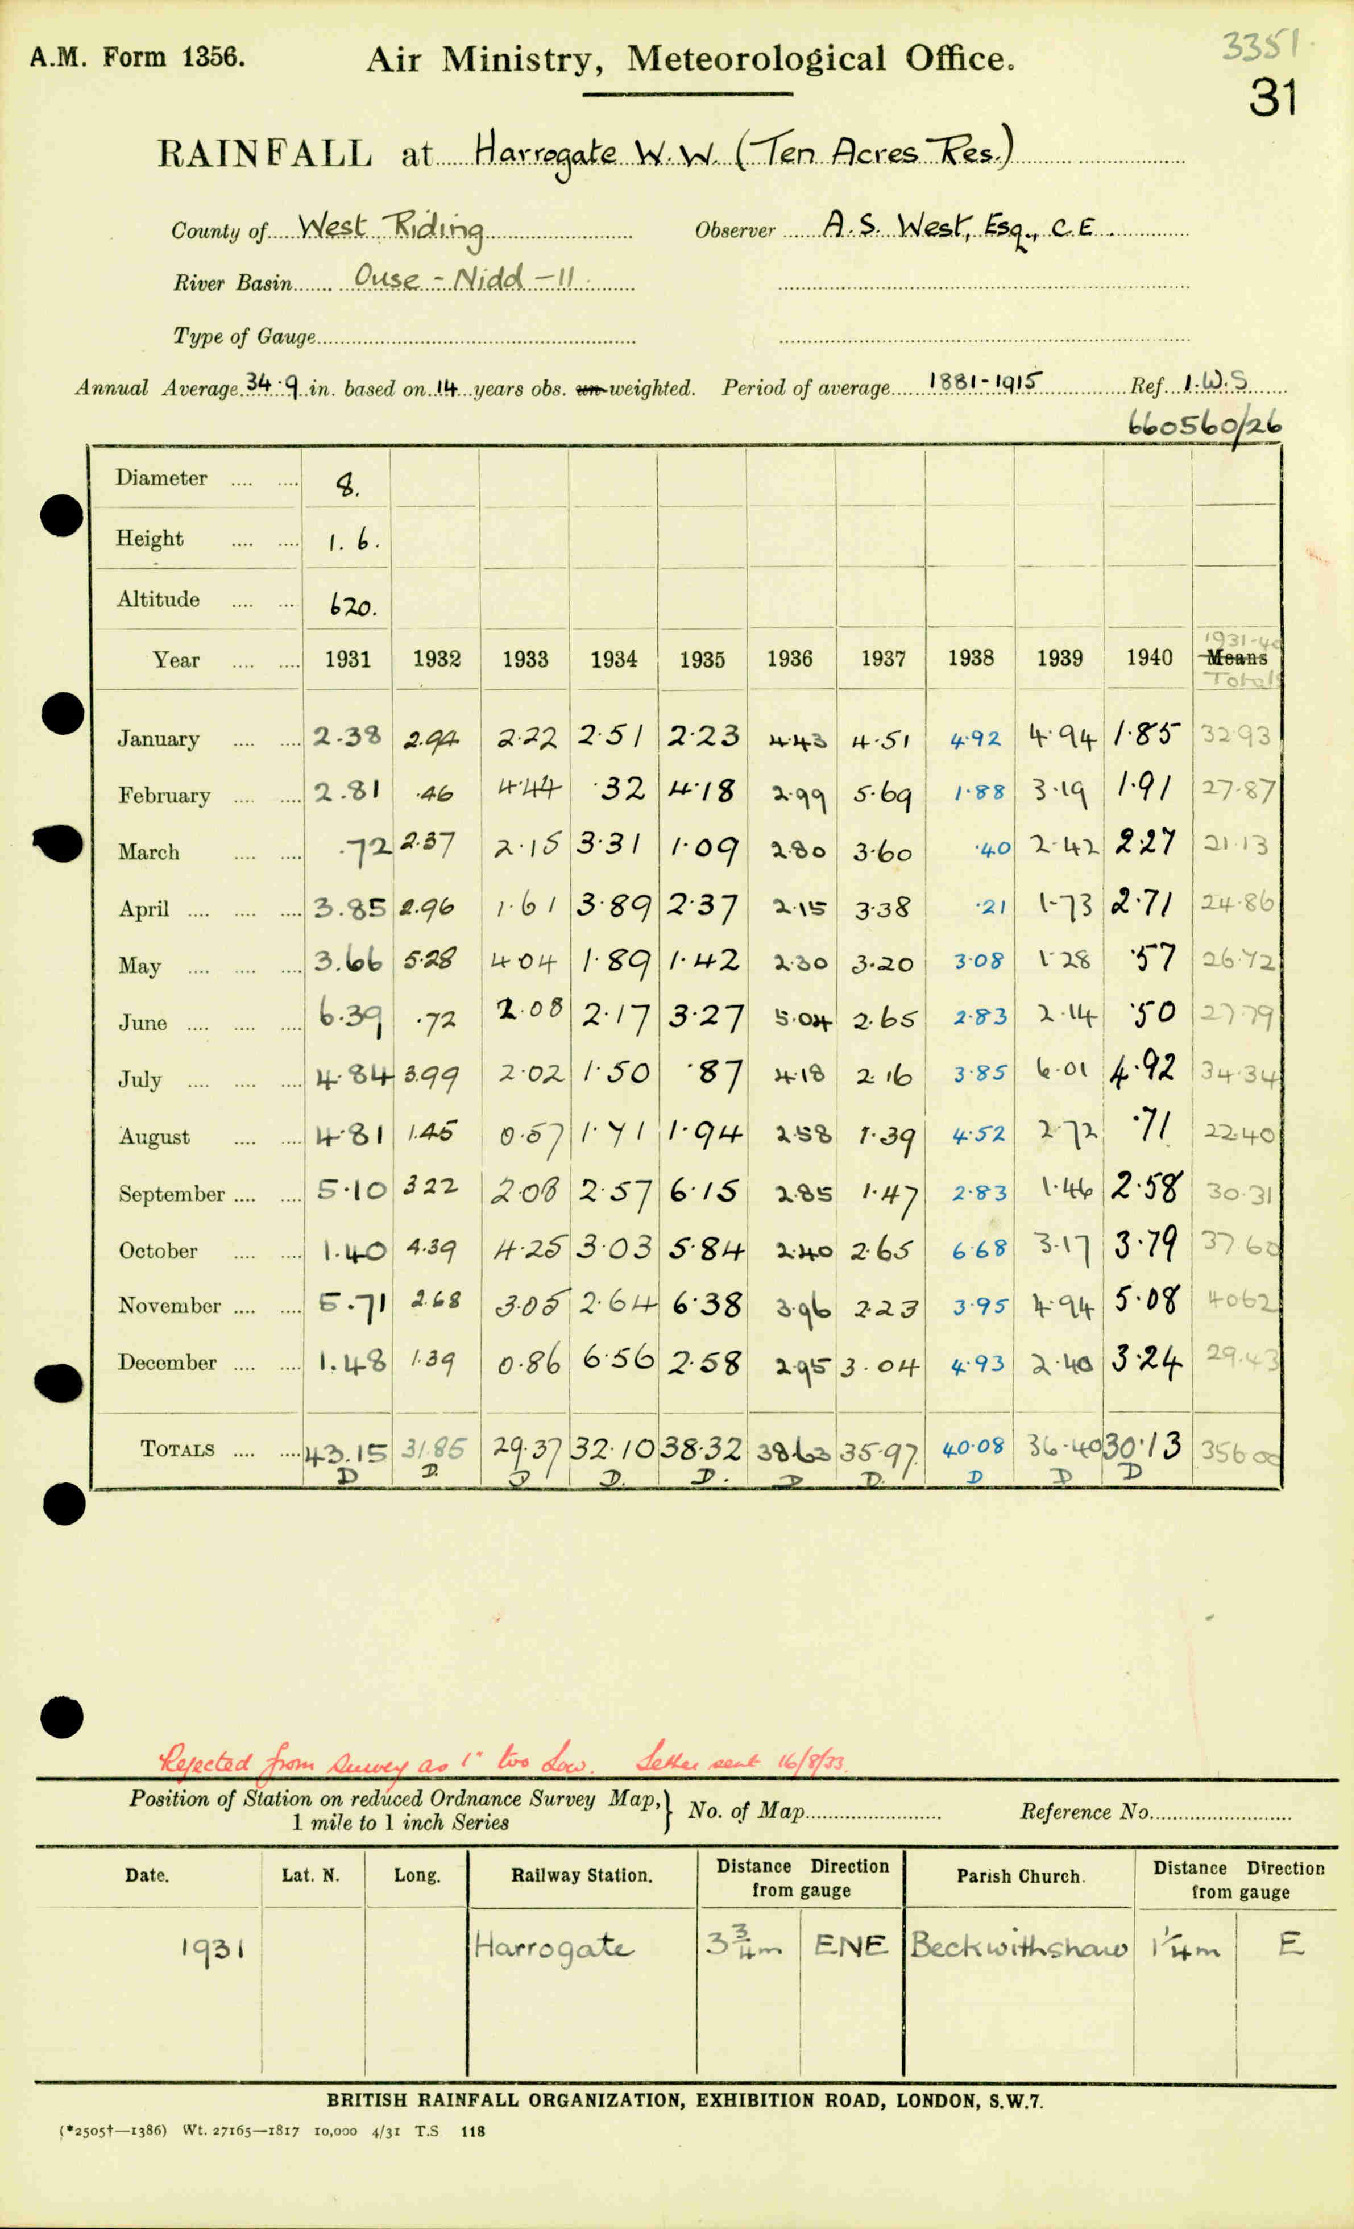 3351.
A.M. Form 1356.
Air Ministry, Meteorological Office.
31
RAINFALL at Harrogate W.W. (Ten Acres Res.)
County of West Riding Observer A.S. West, Esq., C.E.
River Basin Ouse - Nidd - 11
Type of Gauge
Annual Average 34.9 in. based on 14 years obs. un-weighted. Period of average 1881-1915 Ref. I.W.S
660560/26
Diameter 8.
Height 1. 6.
Altitude 620.
Year 1931 1932 1933 1934 1935 1936 1937 1938 1939 1940 1931-40 Means Totals
January 2.38 2.94 2.22 2.51 2.23 4.43 4.51 4.92 4.94 1.85 32.93
February 2.81 .46 4.44 .32 4.18 2.99 5.69 1.88 3.19 1.91 27.87
March .72 2.37 2.15 3.31 1.09 2.80 3.60 .40 2.42 2.27 21.13
April 3.85 2.96 1.61 3.89 2.37 2.15 3.38 .21 1.73 2.71 24.86
May 3.66 5.28 4.04 1.89 1.42 2.30 3.20 3.08 1.28 .57 26.72
June 6.39 .72 2.08 2.17 3.27 5.04 2.65 2.83 2.14 .50 27.79
July 4.84 3.99 2.02 1.50 .87 4.18 2.16 3.85 6.01 4.92 34.34
August 4.81 1.45 0.57 1.71 1.94 2.58 1.39 4.52 2.72 .71 22.40
September 5.10 3.22 2.08 2.57 6.15 2.85 1.47 2.83 1.46 2.58 30.31
October 1.40 4.39 4.25 3.03 5.84 2.40 2.65 6.68 3.17 3.79 37.60
November 5.71 2.68 3.05 2.64 6.38 3.96 2.23 3.95 4.94 5.08 40.62
December 1.48 1.39 0.86 6.56 2.58 2.95 3.04 4.93 2.40 3.24 29.43
TOTALS 43.15 31.85 29.37 32.10 38.32 38.63 35.97 40.08 36.40 30.13 356.00
D D. D D. D. D D. D D D
Rejected from survey as 1" too low. Letter sent 16/8/33.
Position of Station on reduced Ordnance Survey Map,} No. of Map Reference No.
1 mile to 1 inch Series
Date. Lat. N. Long. Railway Station. Distance Direction from gauge Parish Church. Distance Direction from gauge
1931 Harrogate 3 3/4 m ENE Beckwithshaw 1 1/4 m E
BRITISH RAINFALL ORGANIZATION, EXHIBITION ROAD, LONDON, S.W.7.
(*2505†—1386) Wt. 27165—1817 10,000 4/31 T.S 118